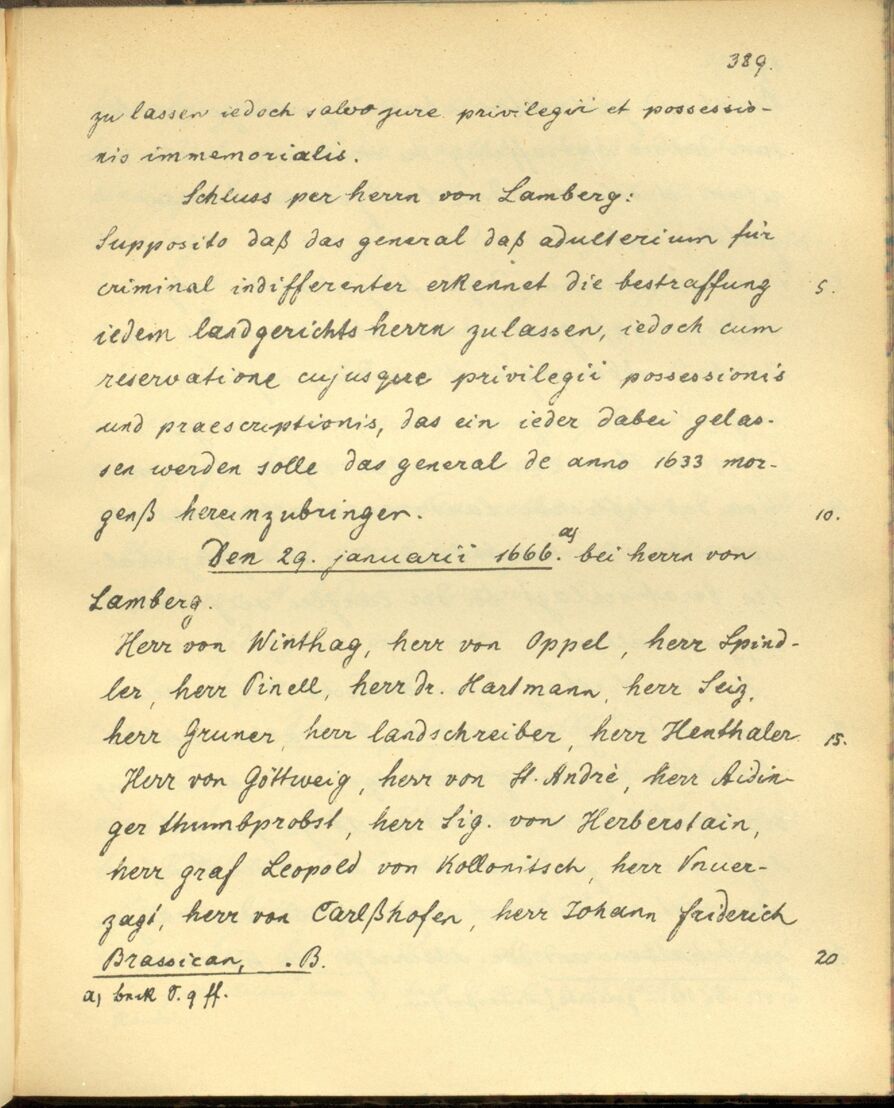 389.
zu lassen iedoch salvo jure privilegii et possessio-
nis immemorialis.
Schluss per herrn von Lamberg:
Supposito daß das general daß adulterium für
criminal indifferenter erkennet die bestraffung 5.
iedem landgerichtsherrn zulassen, iedoch cum
reservatione cujusque privilegii possessionis
und praescriptionis, das ein ieder dabei gelas-
sen werden solle das general de anno 1633 mor-
genß hereinzubringen. 10.
Den 29. januarii 1666. a) bei herrn von
Lamberg.
Herr von Winthag, herr von Oppel, herr Spind-
ler, herr Pinell, herr dr. Hartmann, herr Seiz,
herr Gruner, herr landschreiber, herr Henthaler 15.
Herr von Göttweig, herr von St. Andrè, herr Aidin-
ger thumbprobst, herr Sig. von Herberstain,
herr graf Leopold von Kollonitsch, herr Vnuer-
zagt, herr von Carlßhofen, herr Johann friderich
Brassican, . B. 20.
a) 9 ff.